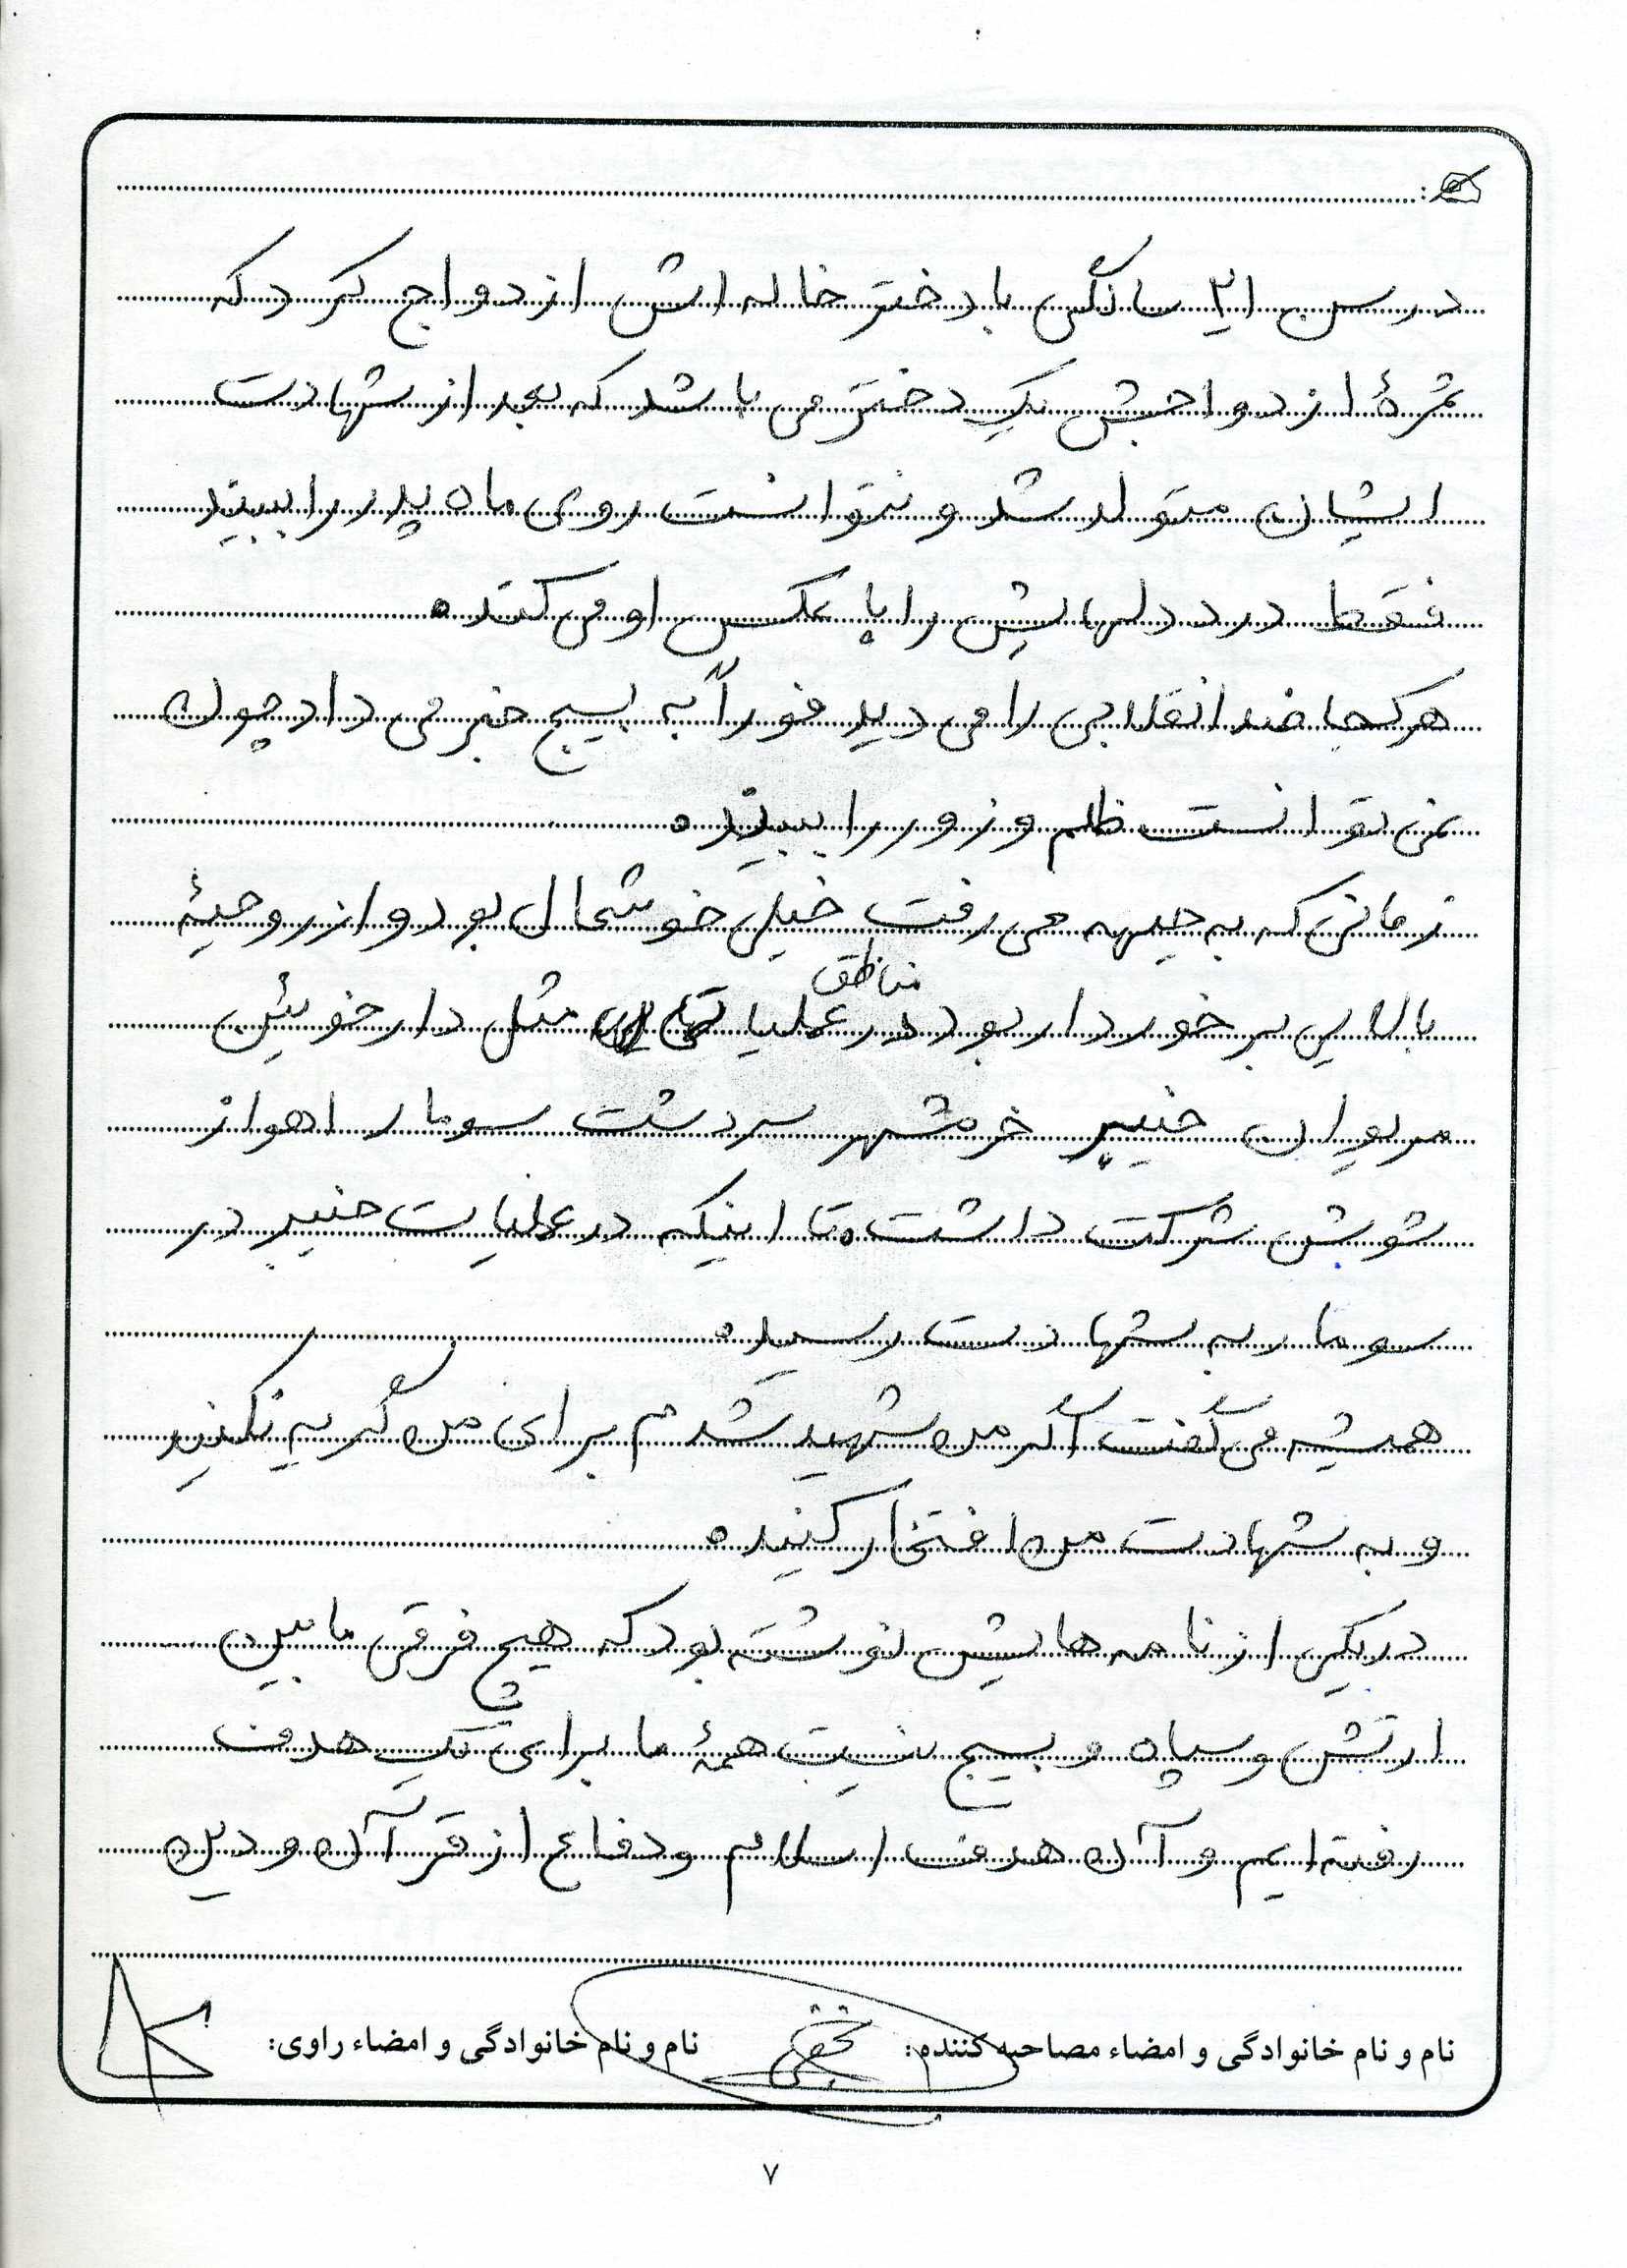 در سن ۲۱ سالگی با دختر خاله اش ازدواج کرد که
ثمرهٔ ازدواجش یک دختر می باشد که بعد از شهادت
ایشان متولد شد و نتوانست روی ماه پدر را ببیند
فقط درد دلهایش را با عکس او می کند.
هر کجا ضد انقلابی را می دید فوراً به بسیج خبر می داد چون
نمی توانست ظلم و زور را ببیند.
زمانی که به جبهه می رفت خیلی خوشحال بود و از روحیهٔ
مناطق
بالایی برخوردار بود در عملیاتی مثل دارخوین
مریوان خیبر خرمشهر سردشت سومار اهواز
شوش شرکت داشت. تا اینکه در عملیات خیبر در
سومار به شهادت رسید.
همیشه می گفت اگر من شهید شدم برای من گریه نکنید
و به شهادت من افتخار کنید.
در یکی از نامه هایش نوشته بود که هیچ فرقی مابین
ارتش و سپاه و بسیج نیست همهٔ ما برای یک هدف
رفته ایم و آن هدف اسلام و دفاع از قرآن و دین
نام و نام خانوادگی و امضاء مصاحبه کننده: نام و نام خانوادگی و امضاء راوی:
۷